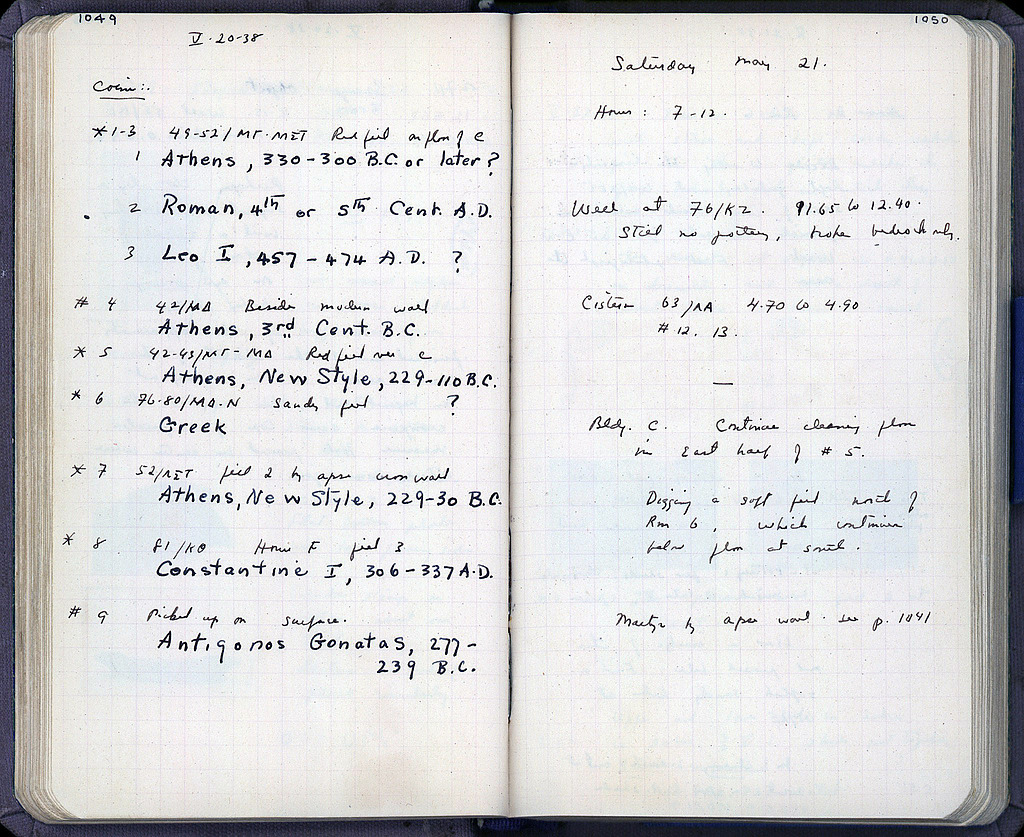 1049
V-20-38
Coins:.
*1-3 49-52/ΜΓ-ΜΕΤ Red fill on floor of C
1 Athens, 330-300 B.C. or later?
2 Roman, 4th or 5th Cent. A.D.
3 Leo I, 457-474 A.D. ?
# 4 42/ΜΔ Beside modern wall
Athens, 3rd Cent. B.C.
* 5 42-43/ΜΓ-ΜΔ Red fill over C
Athens, New Style, 229-110 B.C.
* 6 76-80/ΜΔ-Ν Sandy fill ?
Greek
* 7 52/ΛΣΤ fill 2 by apse cross wall
Athens, New Style, 229-30 B.C.
* 8 81/ΚΘ House F fill 3
Constantine I, 306-337 A.D.
# 9 Picked up on surface.
Antigonos Gonatas, 277-
239 B.C.
1050
Saturday May 21.
Hours: 7-12.
Well at 76/ΚΖ. 11.65 to 12.40.
Still no pottery, broken bedrock only.
Cistern 63/ΛΑ 4.70 to 4.90
# 12. 13.
—
Bldg. C. Continue cleaning floor
in East half of # 5.
Digging a soft fill north of
Rm 6, which continues
below floor at south.
by apse wall. see p. 1041